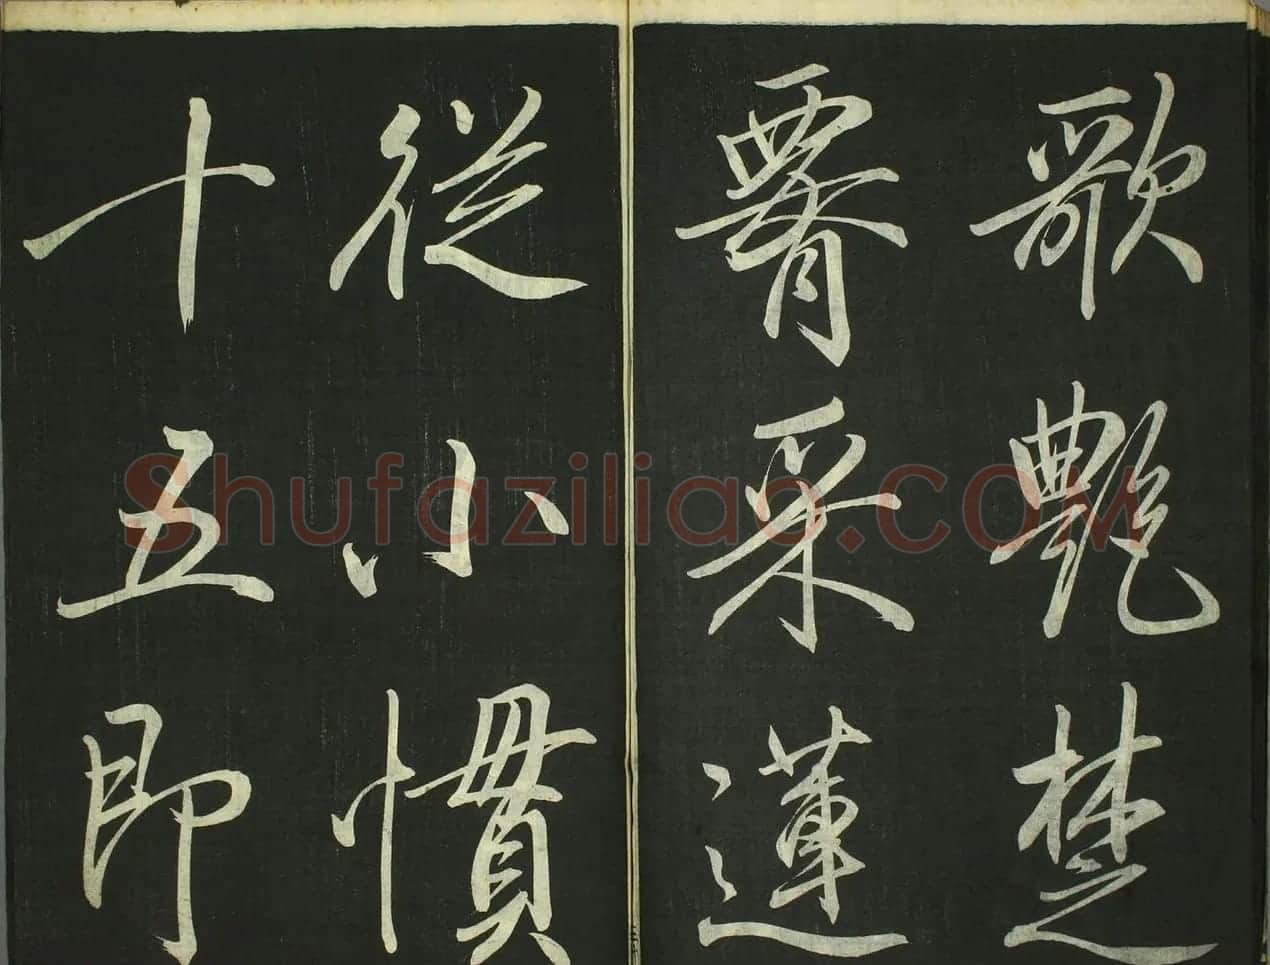 歌艷楚
腰采蓮
從小慣
十五即
Shufaziliao.COM